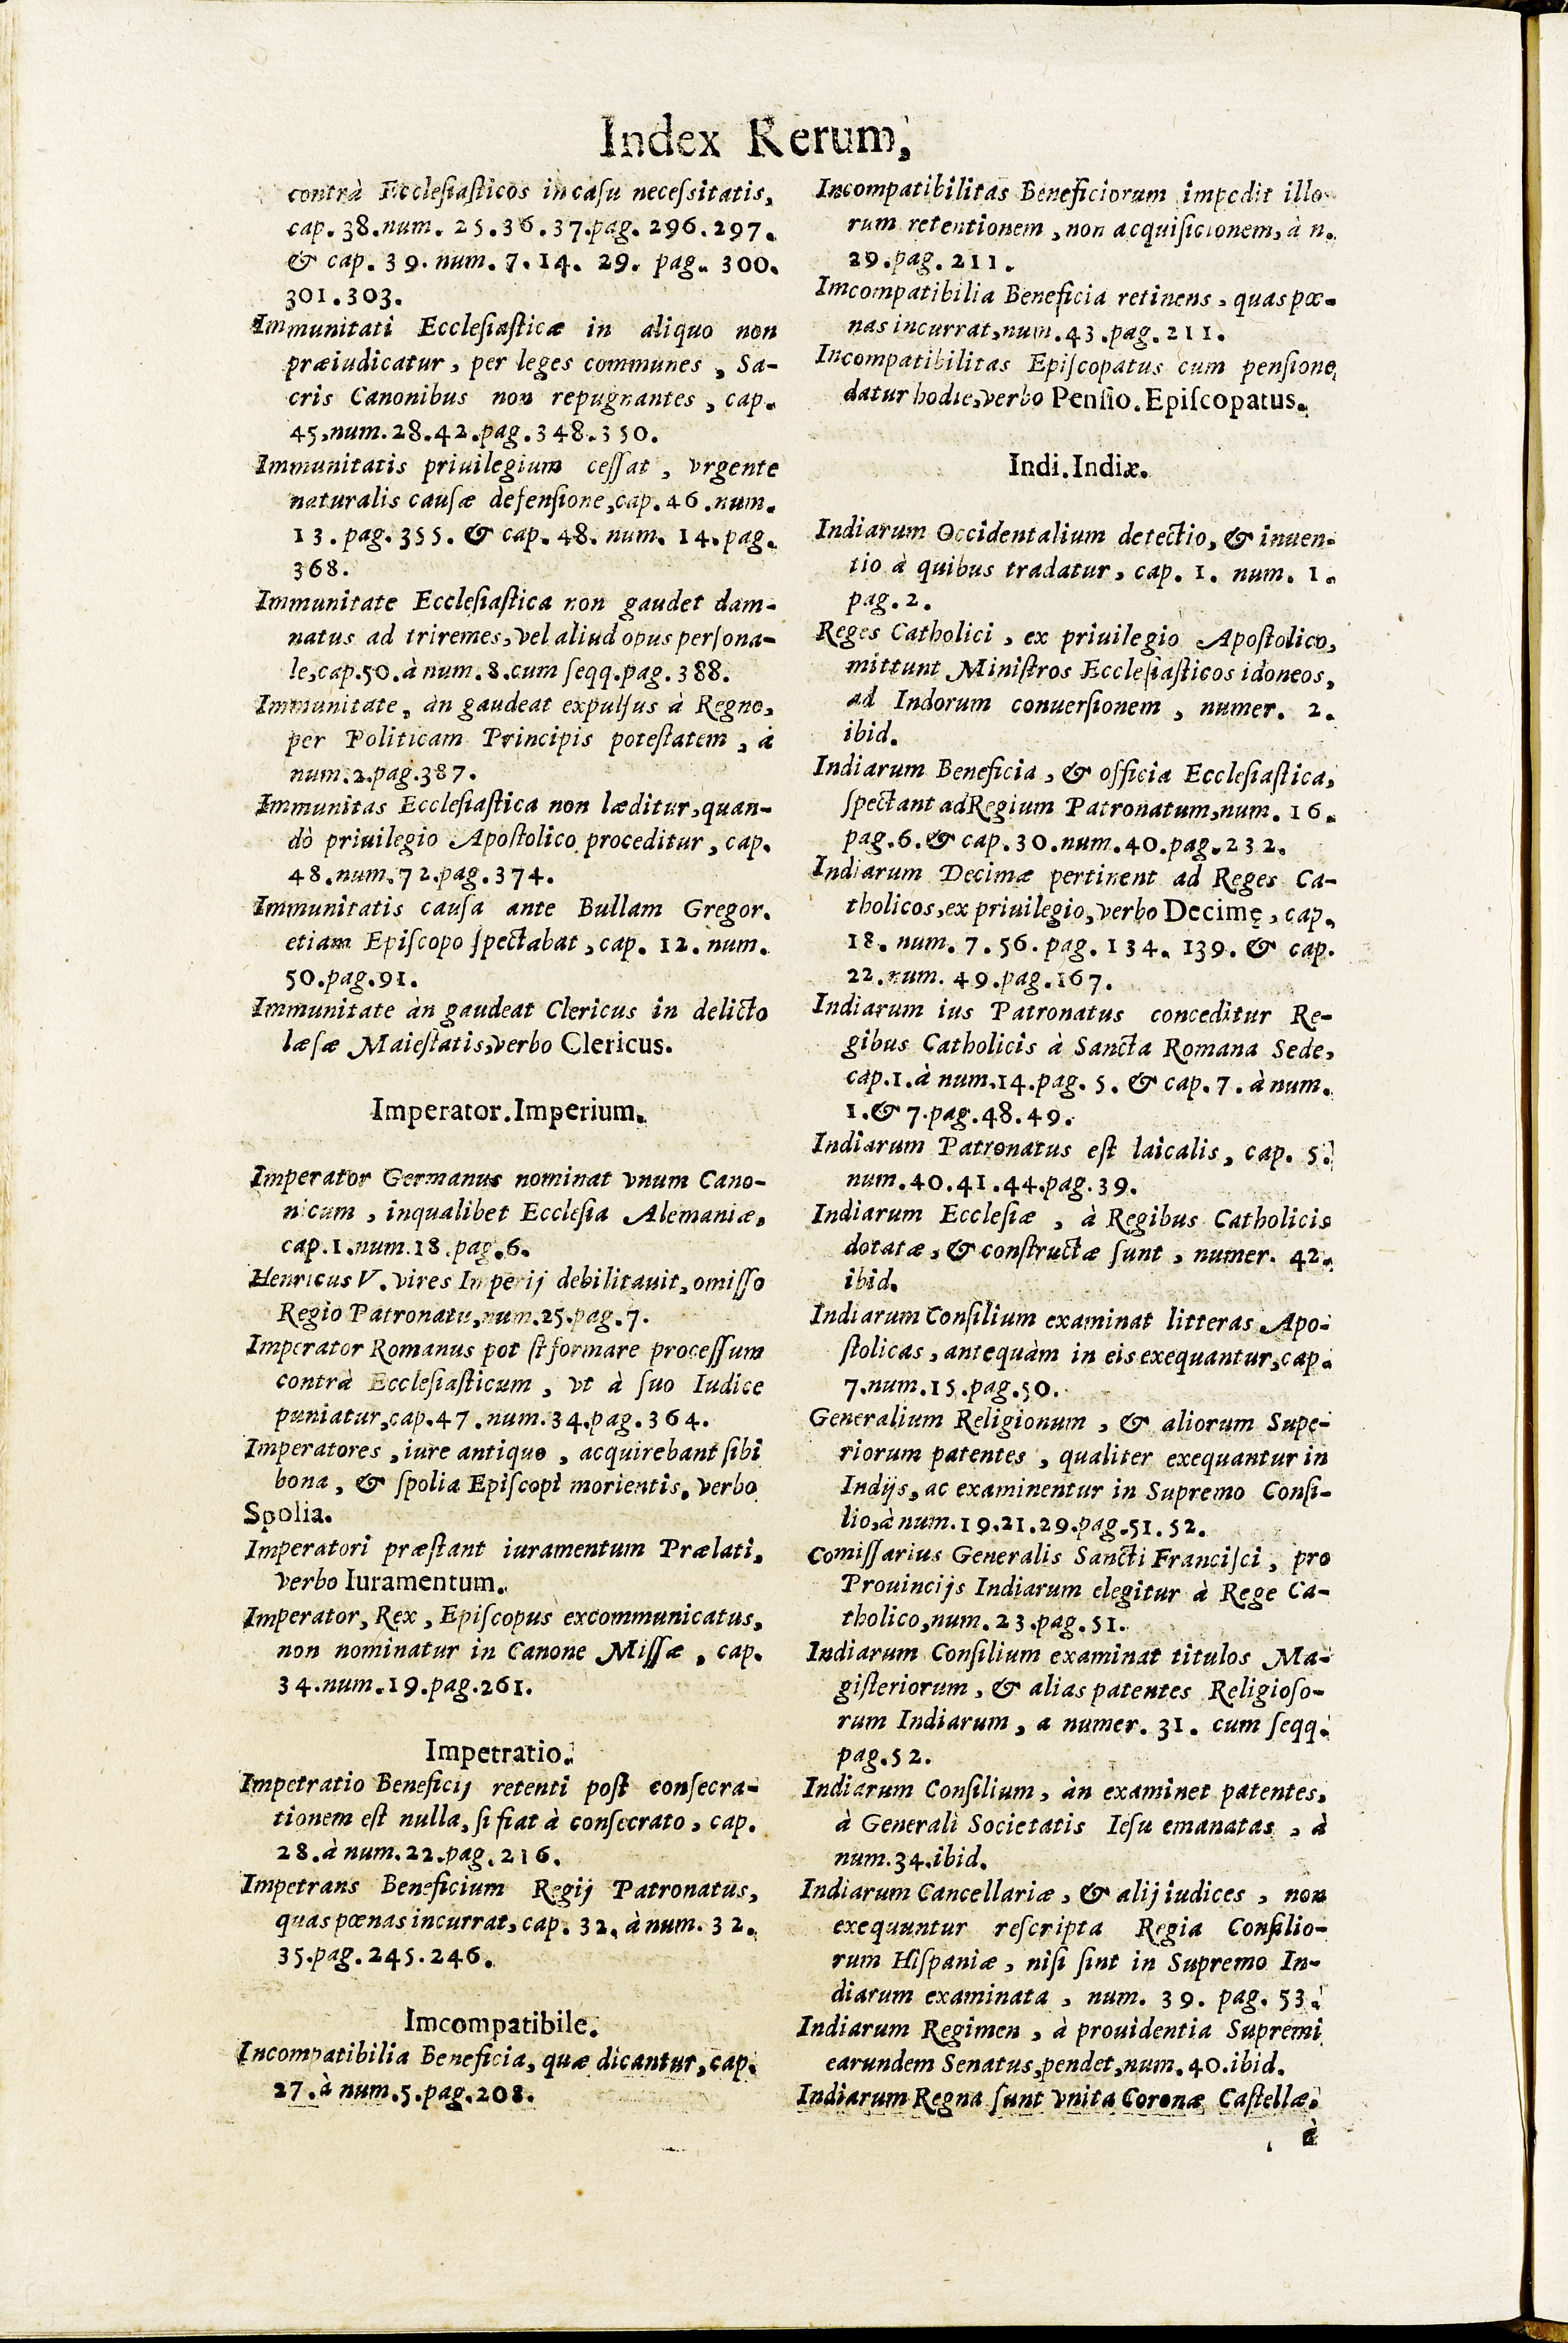 Index Rerum,
contrà Ecclesiasticos in casu necessitatis,
cap. 38. num. 25. 36. 37. pag. 296. 297.
& cap. 39. num. 7. 14. 29. pag. 300.
301. 303.
Immunitati Ecclesiasticæ in aliquo non
præiudicatur, per leges communes, Sa-
cris Canonibus non repugnantes, cap.
45, num. 28. 42. pag. 348. 350.
Immunitatis priuilegium cessat, vrgente
naturalis causæ defensione, cap. 46. num.
13. pag. 355. & cap. 48. num. 14. pag.
368.
Immunitate Ecclesiastica non gaudet dam-
natus ad triremes, vel aliud opus persona-
le, cap. 50. à num. 8. cum seqq. pag. 388.
Immunitate, àn gaudeat expulsus à Regno,
per Politicam Principis potestatem, à
num. 2. pag. 387.
Immunitas Ecclesiastica non læditur, quan-
dò priuilegio Apostolico proceditur, cap.
48. num. 72. pag. 374.
Immunitatis causa ante Bullam Gregor.
etiam Episcopo spectabat, cap. 12. num.
50. pag. 91.
Immunitate àn gaudeat Clericus in delicto
læsæ Maiestatis, verbo Clericus.
Imperator. Imperium.
Imperator Germanus nominat vnum Cano-
nicum, inqualibet Ecclesia Alemaniæ,
cap. 1. num. 18. pag. 6.
Henricus V. vires Imperij debilitauit, omisso
Regio Patronatu, num. 25. pag. 7.
Imperator Romanus pot st formare processum
contrà Ecclesiasticum, vt à suo Iudice
puniatur, cap. 47. num. 34. pag. 364.
Imperatores, iure antiquo, acquirebant sibi
bona, & spolia Episcopi morientis, verbo
Spolia.
Imperatori præstant iuramentum Prælati,
verbo Iuramentum.
Imperator, Rex, Episcopus excommunicatus,
non nominatur in Canone Missæ, cap.
34. num. 19. pag. 261.
Impetratio.
Impetratio Beneficij retenti post consecra-
tionem est nulla, si fiat à consecrato, cap.
28. à num. 22. pag. 216.
Impetrans Beneficium Regij Patronatus,
quas pœnas incurrat, cap. 32. à num. 32.
35. pag. 245. 246.
Imcompatibile.
Incompatibilia Beneficia, quæ dicantur, cap.
27. à num. 5. pag. 208.
Incompatibilitas Beneficiorum impedit illo-
rum retentionem, non acquisicionem, à n.
29. pag. 211.
Imcompatibilia Beneficia retinens, quas pœ-
nas incurrat, num. 43. pag. 211.
Incompatibilitas Episcopatus cum pensione,
datur hodie, verbo Pensio. Episcopatus.
Indi. Indiæ.
Indiarum Occidentalium detectio, & inuen-
tio à quibus tradatur, cap. 1. num. 1.
pag. 2.
Reges Catholici, ex priuilegio Apostolico,
mittunt Ministros Ecclesiasticos idoneos,
ad Indorum conuersionem, numer. 2.
ibid.
Indiarum Beneficia, & officia Ecclesiastica,
spectant adRegium Patronatum, num. 16.
pag. 6. & cap. 30. num. 40. pag. 232.
Indiarum Decimæ pertinent ad Reges Ca-
tholicos, ex priuilegio, verbo Decimę, cap.
18. num. 7. 56. pag. 134. 139. & cap.
22. num. 49. pag. 167.
Indiarum ius Patronatus conceditur Re-
gibus Catholicis à Sancta Romana Sede,
cap. 1. à num. 14. pag. 5. & cap. 7. à num.
1. & 7. pag. 48. 49.
Indiarum Patronatus est laicalis, cap. 5.
num. 40. 41. 44. pag. 39.
Indiarum Ecclesiæ, à Regibus Catholicis
dotatæ, & constructæ sunt, numer. 42.
ibid.
Indiarum Consilium examinat litteras Apo-
stolicas, antequàm in eis exequantur, cap.
7. num. 15. pag. 50.
Generalium Religionum, & aliorum Supe-
riorum patentes, qualiter exequantur in
Indijs, ac examinentur in Supremo Consi-
lio, à num. 19. 21. 29. pag. 51. 52.
Comissarius Generalis Sancti Francisci, pro
Prouincijs Indiarum elegitur à Rege Ca-
tholico, num. 23. pag. 51.
Indiarum Consilium examinat titulos Ma-
gisteriorum, & alias patentes Religioso-
rum Indiarum, a numer. 31. cum seqq.
pag. 52.
Indiarum Consilium, àn examinet patentes,
à Generali Societatis Iesu emanatas, à
num. 34. ibid.
Indiarum Cancellariæ, & alij iudices, non
exequuntur rescripta Regia Consilio-
rum Hispaniæ, nisi sint in Supremo In-
diarum examinata, num. 39. pag. 53.
Indiarum Regimen, à prouidentia Supremi
earundem Senatus, pendet, num. 40. ibid.
Indiarum Regna sunt vnita Coronæ Castellæ.
à